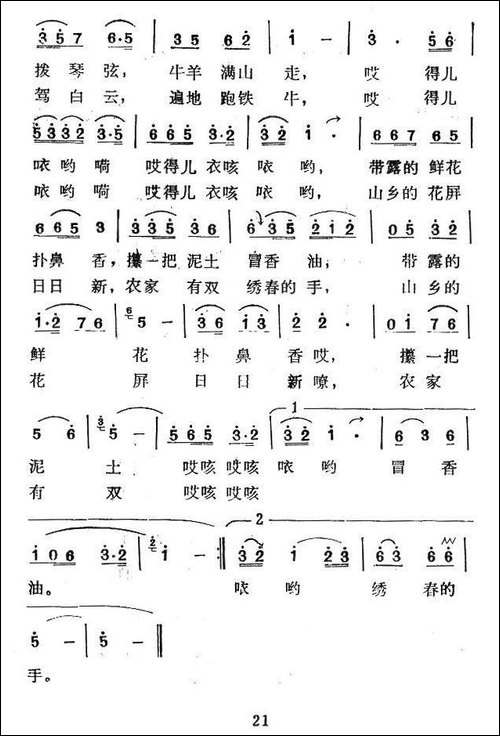 3 5 7 6·5 | 3 5 6 2 | 1 — | 3· 5 6 |
拨琴弦， 牛羊 满山 走， 哎 得儿
驾白云， 遍地 跑铁 牛， 哎 得儿
5 3 3 2 3·5 | 6 6 5 3·2 | 3 2 1· | 6 6 7 6 5 |
咴哟嗬 哎得儿 衣咳 咴 哟， 带露的 鲜花
咴哟嗬 哎得儿 衣咳 咴 哟， 山乡的 花屏
6 6 5 3 | 3 3 5 3 5 | 6 3 5 2 1 2 | 0 5 6 5 |
扑鼻 香，攥一把 泥土 冒香 油， 带 露的
日日 新，农家 有双 绣春的 手， 山 乡的
1·2 7 6 | 5 — | 3 6 1 3 | 2 2 | 0 1 7 6 |
鲜 花 扑 鼻 香哎， 攥 一把
花 屏 日 日 新嘹， 农 家
5 6 | 5 — | 5 6 5 3·2 | 3 2 1· | 6 3 6 |
泥 土 哎咳 哎咳 咴 哟 冒 香
有 双 哎咳 哎咳
1 0 6 3·2 | 1 — :| 3 2 1 2 3 | 6 3 6 6 |
油。 咴 哟 绣 春的
5 — | 5 — |
手。
21